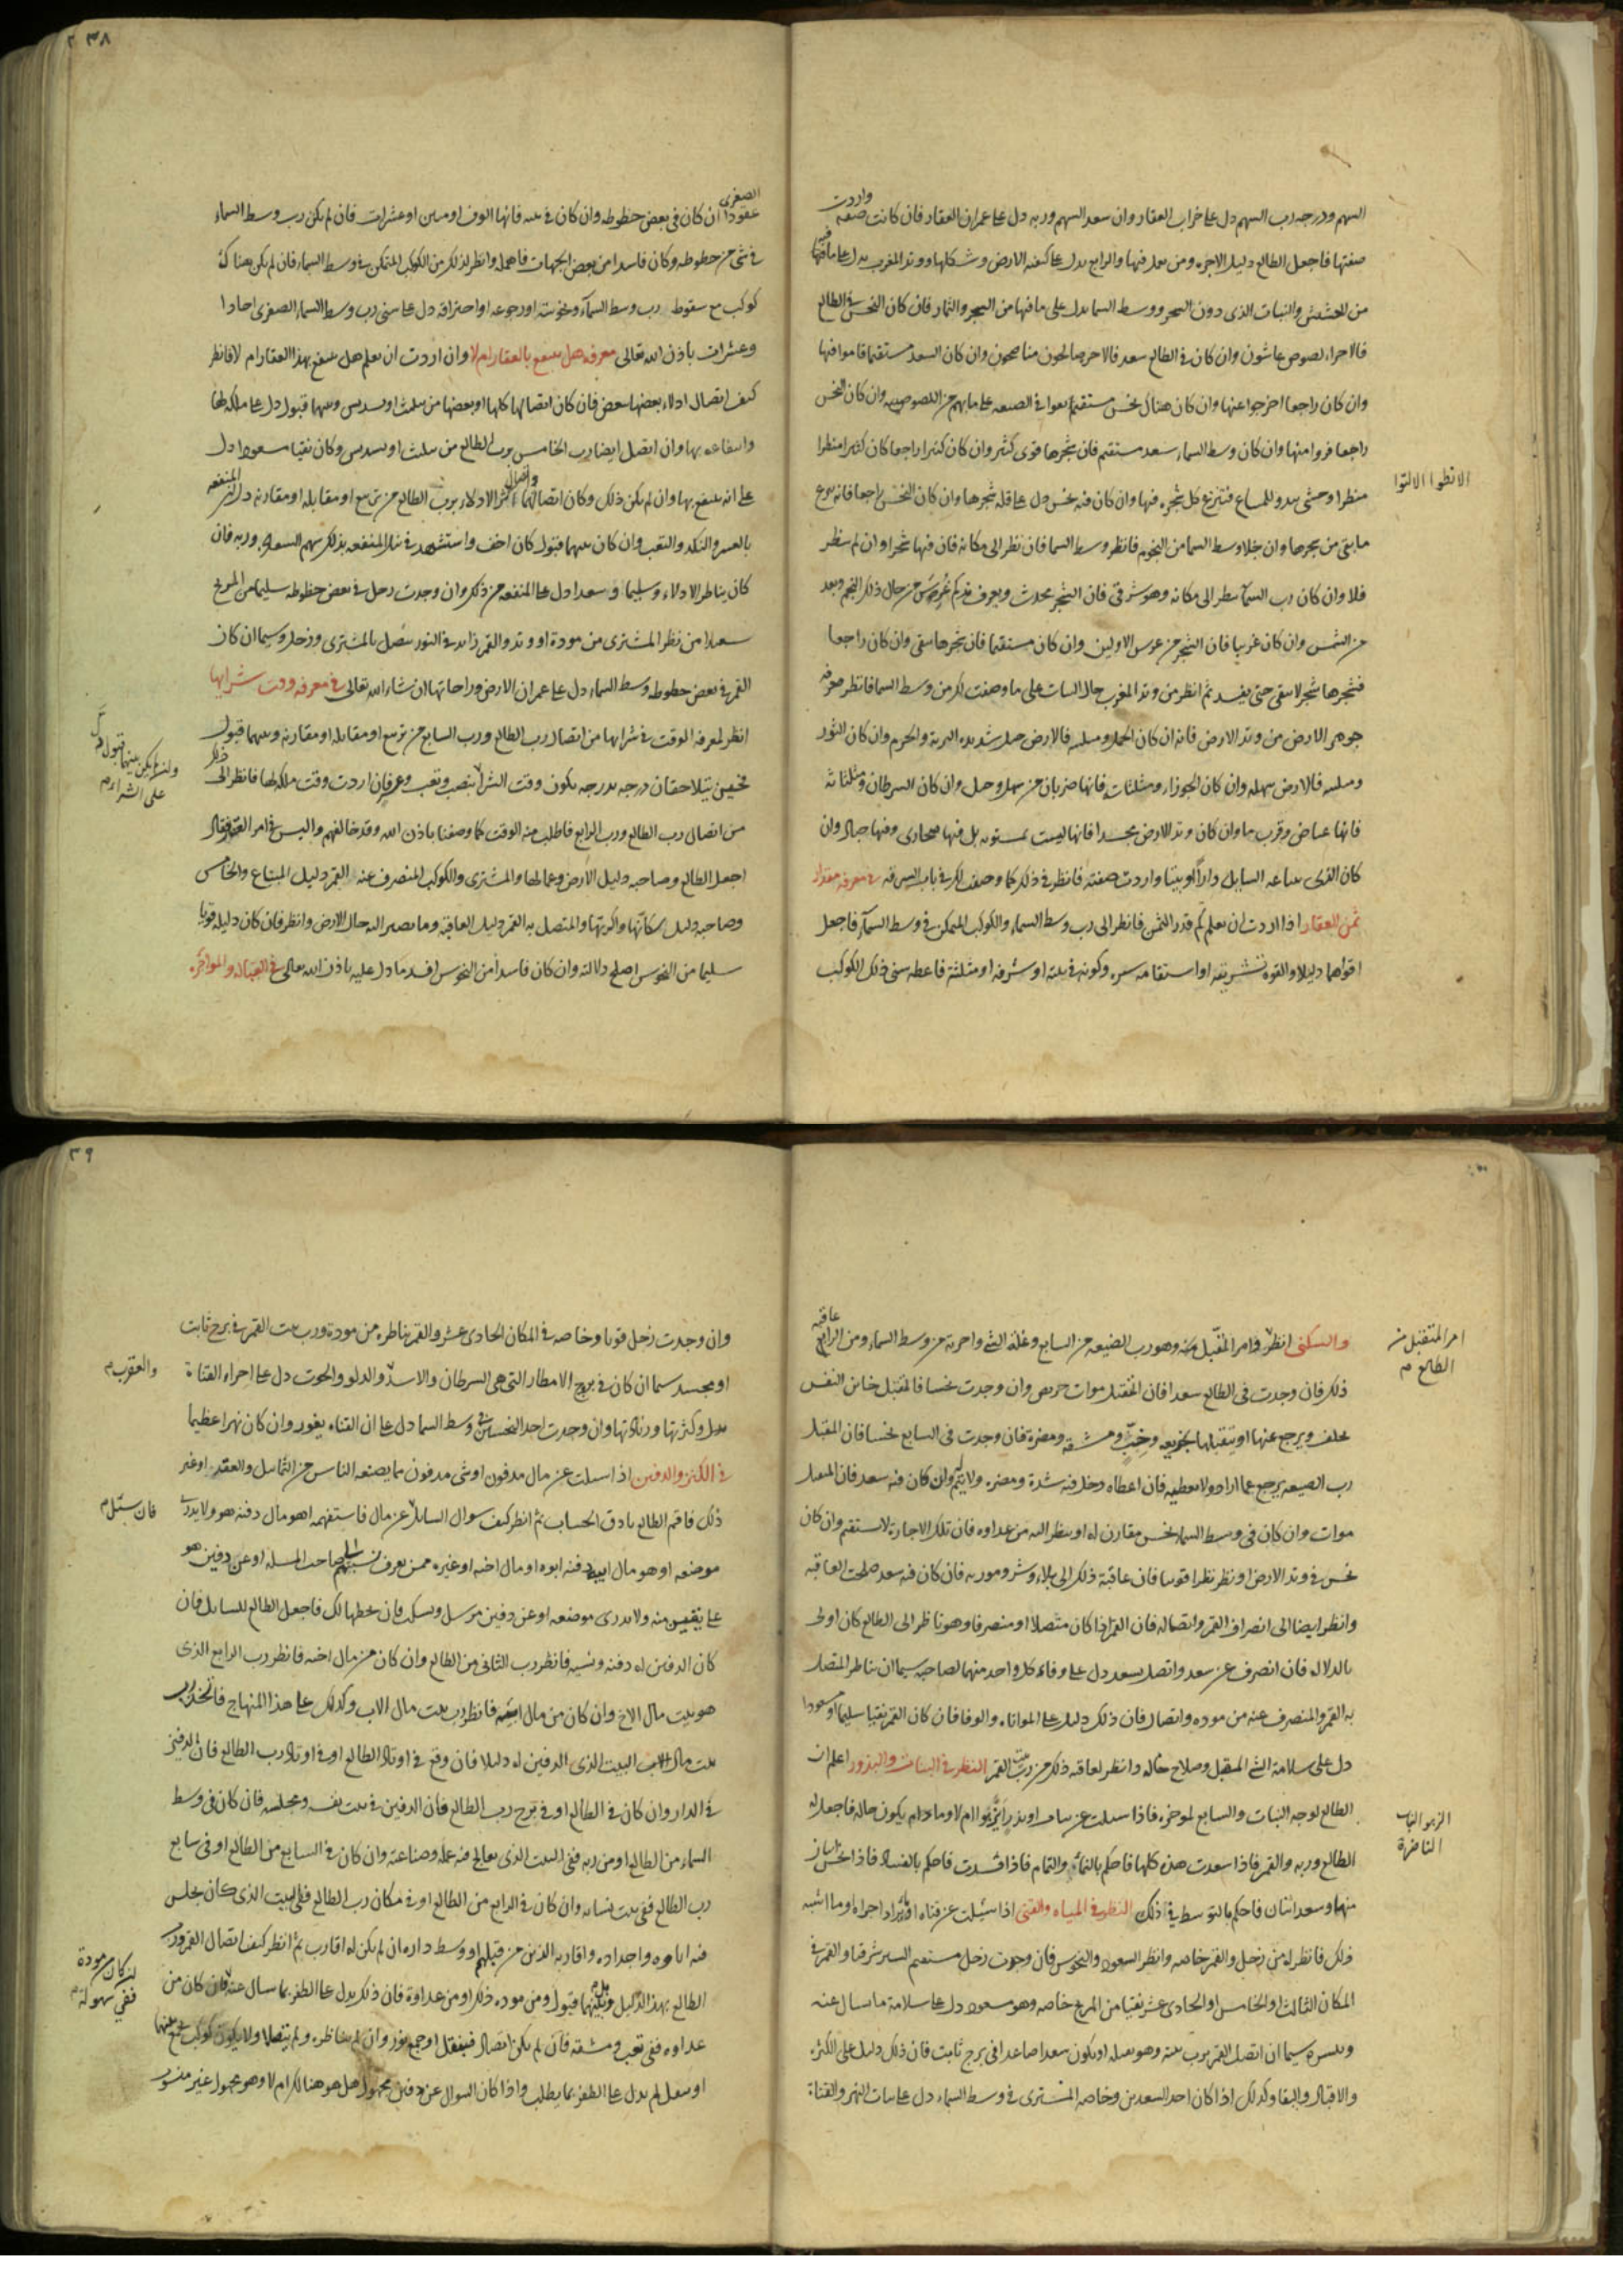 ٢ ٣٨
السهم ودرجه رب السهم دل على خراب العقار وان سعد السهم وربه دل على عمران العقار فان كانت صفه واردت
صفتها فاجعل الطالع دليل الاجره ومن يعمل فيها والرابع يدل على كيفيه الارض وشكلها ووتد المغرب يدل على ما فيها
من الحشيش والنبات الذى دون الشجر ووسط السما يدل على ما فيها من الشجر والثمار فان كان النحس في الطالع
فالاجراء لصوص غاشون وان كان في الطالع سعد فالاجرا صالحون مناصحون وان كان السعد مستقيما قاموا فيها
وان كان راجعا اخرجوا عنها وان كان هناك نحس مستقيم بقوا في الضيعه على ما بهم من اللصوصيه وان كان النحس
راجعا فروا منها وان كان وسط السماء سعد مستقيم فان شجرها قوى كثير وان كان كثيرا راجعا كان كثيرا منظرا
الانظوا الالتوا
منظرا وحشى يبدو للمساع فتنزع كل شجره فيها وان كان فيه نحس دل على قلة شجرها وان كان النحس راجعا فانه ينزع
ما بقى من شجرها وان خلا وسط السما من النجوم فانظر وسط السما فان نظر الى مكانه فان فيها شجرا وان لم ينظر
فلا وان كان رب السماء ينظر الى مكانه وهو شرقى فان الشجر يحدث ويعرف قدر كم غرس من حال ذلك النجم وبعده
من الشمس وان كان غربيا فان الشجر من غرس الاولين وان كان مستقيما فان شجرها يبقى وان كان راجعا
فشجرها شجر لا يبقى حتى يفسد ثم انظر من وتد المغرب حال النبات على ما وصفت لك من وسط السما فانظر معرفه
جوهر الارض من وتد الارض فانه ان كان الحمل ومثلثيه فالارض جبل شديده التربة والحرم وان كان الثور
ومثلثيه فالارض سهله وان كان الجوزاء ومثلثاته فانها ضربان من سهل وجبل وان كان السرطان ومثلثاته
فانها غياض وقرب ما وان كان وتد الارض مجسدا فانها ليست بمستويه بل فيها صحارى وفيها جبال وان
كان الذى يباعه السايل دارا او بيتا واردت صفته فانظر في ذلك كما وصفت لك في باب السرقه في معرفه مقدار
ثمن العقار اذا اردت ان تعلم كم قدر الثمن فانظر الى رب وسط السماء والكوكب المتمكن في وسط السماء فاجعل
اقواهما دليلا والقوه تشريقه او استقامه سيره وكونه في بيته او شرفه او مثلثته فاعطه سنى ذلك الكوكب
الصغرى
عقودا ان كان في بعض حظوظه وان كان في بيته فانها الوف او ميين او عشرات فان لم يكن رب وسط السماء
في شى من حظوظه وكان فاسدا من بعض الجهات فاهمله وانظر لذلك من الكوكب المتمكن في وسط السماء فان لم يكن هناك
كوكب مع سقوط رب وسط السماء ونحوسته او رجوعه او احتراقه دل على سنى رب وسط السماء الصغرى احادا
وعشرات باذن الله تعالى معرفه هل ينتفع بالعقار ام لا وان اردت ان تعلم هل ينتفع بهذا العقار ام لا فانظر
كيف اتصال الادلاء بعضها ببعض فان كان اتصالها كلها او بعضها من تثليث او تسديس وبينهما قبول دل على ملكه لها
وانتفاعه بها وان اتصل ايضا رب الخامس برب الطالع من تثليث او تسديس وكان نقيا مسعودا دل
على انه ينتفع بها وان لم يكن ذلك وكان اتصالهما اكثر الادلاء برب الطالع من تربيع او مقابله او مقارنه دل على المنفعه
بالعسر والنكد والتعب وان كان بينهما قبول كان اخف واستشهد في تلك المنفعه بذلك سهم السعاده وربه فان
كان يناظر الادلاء وسليما وسعدا دل على المنفعه من ذلك وان وجدت زحل في بعض حظوظه سليما من المريخ
سعدا من نظر المشترى من مودة او وتد والقمر زايد في النور متصل بالمشترى وزحل وسيما ان كان
القمر في بعض حظوظه وسط السماء دل على عمران الارض وراحاتها ان شاء الله تعالى في معرفه وقت شرايها
انظر لمعرفه الوقت في شرايها من اتصال رب الطالع ورب السابع من تربيع او مقابله او مقارنه وبينهما قبول
ولم يكن بينهما قبول دل على الشراء م
فحين يتلاحقان درجه بدرجه يكون وقت الشرا بنصب وتعب وعمر فان اردت وقت ملكه لها فانظر الى
من اتصال رب الطالع ورب الرابع فاطلب منه الوقت كما وصفنا باذن الله وقد خالفهم واليس في امر العقد فقال
اجعل الطالع وصاحبه دليل الارض وعمالها والمشترى والكوكب المنصرف عنه القمر دليل المبتاع والخامس
وصاحبه دليل سكانها والمتصل به القمر دليل العاقبه وما يصير اليه حال الارض وانظر فان كان دليله قويا
سليما من النحوس اصلح دلالته وان كان فاسدا من النحوس افسد ما دل عليه باذن الله تعالى في القباله والمواجره
٣٩
امر المتقبل من الطالع م
والسكنى انظر وامر المقبل منه وهو رب الضيعه من السابع وغلة الشى واجرته من وسط السماء ومن الرابع عاقبه
ذلك فان وجدت في الطالع سعدا فان المتقبل موات حريص وان وجدت نحسا فالمتقبل خاين النفس
يخلف ويرجع عنها او يتقبلها بخديعه وخب ومشقه ومضرة فان وجدت في السابع نحسا فان المقبل
رب الضيعه يرجع عما اراد ولا يعطيه فان اعطاه دخل فيه شدة ومضره ولا يتم وان كان فيه سعد فان المقبل
موات وان كان في وسط السماء نحس مقارن له او ينظر اليه من عداوه فان تلك الاجارة لا تستقيم وان كان
نحس في وتد الارض او نظر نظرا قويا فان عاقبة ذلك الى بلاء وشر ومؤديه فان كان فيه سعد صلحت العاقبه
وانظر ايضا الى انصراف القمر واتصاله فان القمر اذا كان متصلا او منصرفا وهو ناظر الى الطالع كان اولى
بالدلاله فان انصرف عن سعد واتصل بسعد دل على وفاء كل واحد منهما لصاحبه سيما ان يناظر المتصل
به القمر والمنصرف عنه من موده واتصال فان ذلك دليل على المواتاه والوفا فان كان القمر نقيا سليما او مسعودا
دل على سلامة الشى المتقبل وصلاح حاله وانظر لعاقبه ذلك من رب بيت القمر النظر في النبات والبذور اعلم ان
الطالع لوجه النبات والسابع لموخره فاذا سيلت عن نبات او بذر ايزكوا ام لا وما دام يكون حاله فاجعل له
الزهو النبات الناضرة
الطالع وربه والقمر فاذا سعدت هذه كلها فاحكم بالنماء والتمام فاذا افسدت فاحكم بالفساد فاذا نحس اثنان
منها وسعد اثنان فاحكم بالتوسط في ذلك النظر في المياه والقنى اذا سئلت عن قناه او بئر اراد اجراه او ما اشبه
ذلك فانظر له من زحل والقمر خاصه وانظر السعود والنحوس فان وجدت زحل مستقيم السير شرقيا والقمر في
المكان الثالث او الخامس او الحادى عشر نقيا من المريخ خاصه وهو مسعود دل على سلامة ما سال عنه
وتيسره سيما ان اتصل القمر برب بيته وهو يقبله او يكون سعدا صاعدا في برج ثابت فان ذلك دليل على الكثره
والاقبال والبقا وكذلك اذا كان احد السعدين وخاصه المشترى في وسط السماء دل على ثبات النهر والقناة
وان وجدت زحل قويا وخاصه في المكان الحادى عشر والقمر يناظره من مودة ورب بيت القمر في برج ثابت
او مجسد سيما ان كان في بروج الامطار التى هى السرطان والاسد والدلو والحوت دل على اجراء القناة
والعقرب م
وكثرتها وزيادتها وان وجدت احد النحسين في وسط السما دل على ان القناه يغور وان كان نهرا عظيما
في الكنز والدفين اذا سيلت عن مال مدفون او شى مدفون مما يصنعه الناس من التماثيل والعقد او غير
فان سئل م
ذلك فاقم الطالع بادق الحساب ثم انظر كيف سوال السايل عن مال فاستفهمه اهو مال دفنه هو ولا يدرى
موضعه او هو مال ابيه دفنه ابوه او مال اخيه او غيره ممن يعرف نسبتهم الى صاحب المسله او عن دفين هو
على يقين منه ولا يدرى موضعه او عن دفين مرسل فاجعل الطالع للسايل فان
كان الدفين له دفنه ونسيه فانظر رب الثانى من الطالع وان كان من مال اخيه فانظر رب الرابع الذى
هو بيت مال الاخ وان كان من مال ابيه فانظر رب بيت مال الاب وكذلك على هذا المنهاج فاتخذ رب
بيت مال البيت الذى الدفين له دليلا فان وقع في اوتاد الطالع او في اوتاد رب الطالع فان الدفين
في الدار وان كان في الطالع او في برج رب الطالع فان الدفين في بيت نفسه ومجلسه فان كان في وسط
السماء من الطالع او من ربه ففى البيت الذى يعالج فيه عمله وصناعته وان كان في السابع من الطالع او في سابع
رب الطالع ففى بيت نسائه وان كان في الرابع من الطالع او في مكان رب الطالع ففى البيت الذى كان يجلس
فيه اباوه واجداده واقاربه الذين من قبلهم او وسط داره ان لم يكن له اقارب ثم انظر كيف اتصال القمر ورب
ان كان من مودة ففى سهولة م
الطالع بهذا الدليل وبينهما قبول ومن موده ذلك او من عداوة فان ذلك يدل على الظفر بما سال عنه فان كان من
عداوه ففى تعب ومشقه فان لم يكن اتصال فبنقل او جمع نور وان لم يتناظره ولم يتصلا ولا يكون كوكب يجمع بينهما
او ينقل لم يدل على الظفر بما يطلب واذا كان السوال عن دفين مجهول هل هو هنالك ام لا وهو مجهول غير منسوب